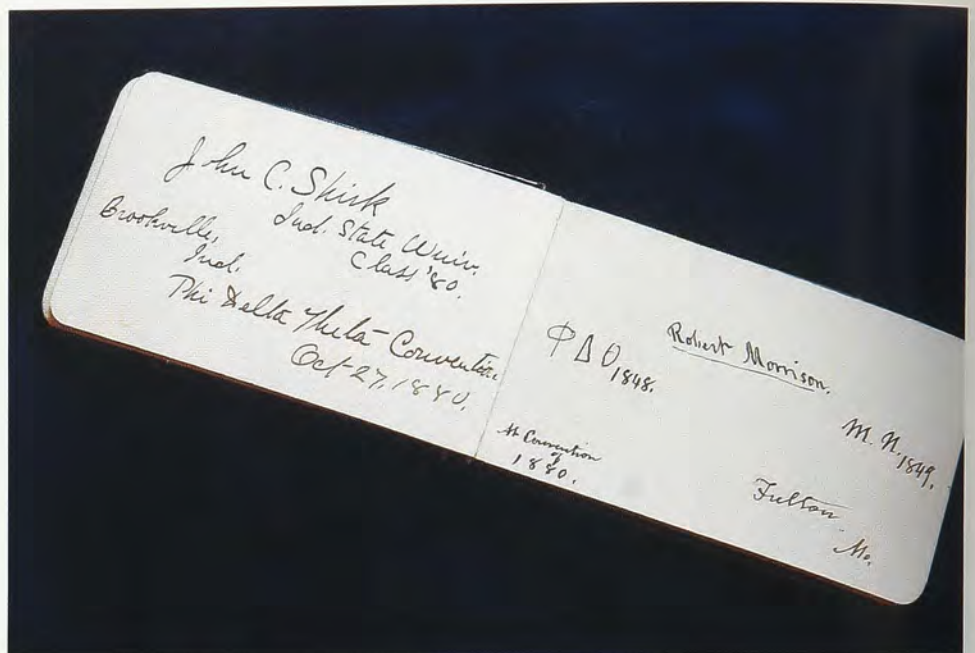 John C. Shirk
Ind. State Univ.
Class '80.
Brookville,
Ind.
Phi Delta Theta Convention
Oct 27, 1880.
Robert Morrison.
Φ Δ θ 1848.
M. U. 1849.
At Convention
of
1880.
Fulton
Mo.